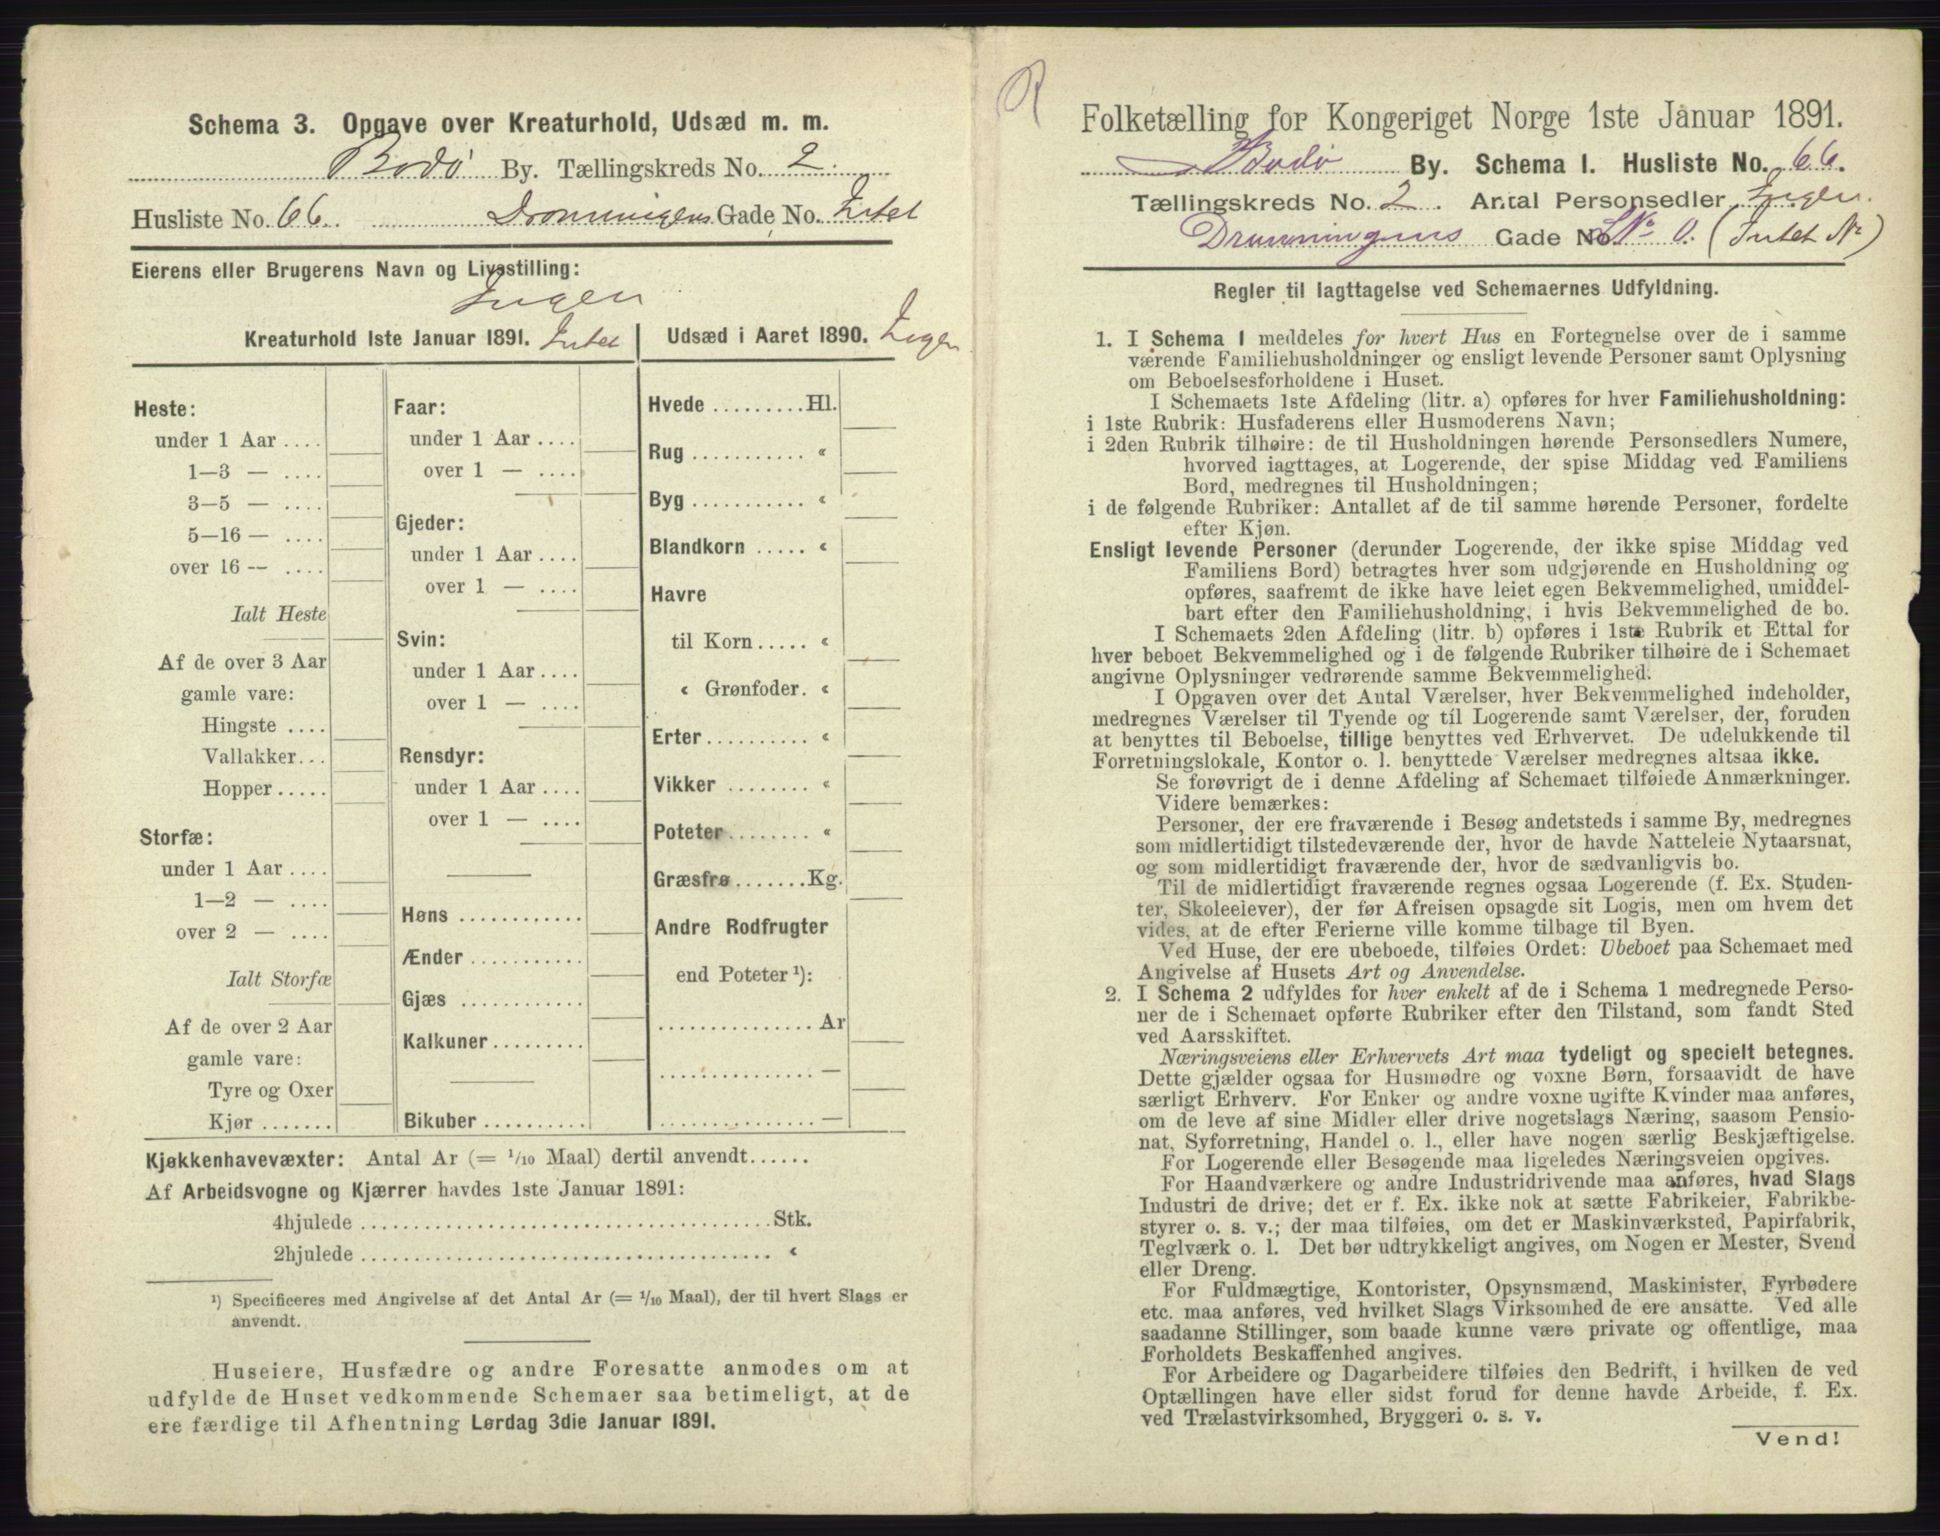 Schema 3. Opgave over Kreaturhold, Udsæd m. m.
Bodø By. Tællingskreds No. 2.
Husliste No. 66. Dronningens Gade No. Intet
Eierens eller Brugerens Navn og Livsstilling:
Ingen
Kreaturhold 1ste Januar 1891. Intet
Heste:
under 1 Aar ....
1—3 — ....
3—5 — ....
5—16 — ....
over 16 — ....
Ialt Heste
Af de over 3 Aar
gamle vare:
Hingste ....
Vallakker...
Hopper.....
Storfæ:
under 1 Aar ....
1—2 — ....
over 2 — ....
Ialt Storfæ
Af de over 2 Aar
gamle vare:
Tyre og Oxer
Kjør .......
Faar:
under 1 Aar ....
over 1 — ....
Gjeder:
under 1 Aar ....
over 1 — ....
Svin:
under 1 Aar ....
over 1 — ....
Rensdyr:
under 1 Aar ....
over 1 — ....
Høns ............
Ænder ...........
Gjæs ............
Kalkuner.........
Bikuber ..........
Udsæd i Aaret 1890. Ingen
Hvede .........Hl.
Rug ........... «
Byg ........... «
Blandkorn ..... «
Havre
til Korn..... «
« Grønfoder. «
Erter.......... «
Vikker ........ «
Poteter........ «
Græsfrø.......Kg.
Andre Rodfrugter
end Poteter ¹):
............... Ar
............... —
............... —
Kjøkkenhavevæxter: Antal Ar (= 1/10 Maal) dertil anvendt......
Af Arbeidsvogne og Kjærrer havdes 1ste Januar 1891:
4hjulede ......................................Stk.
2hjulede ...................................... «
¹) Specificeres med Angivelse af det Antal Ar (= 1/10 Maal), der til hvert Slags er
anvendt.
Huseiere, Husfædre og andre Foresatte anmodes om at
udfylde de Huset vedkommende Schemaer saa betimeligt, at de
ere færdige til Afhentning Lørdag 3die Januar 1891.
Folketælling for Kongeriget Norge 1ste Januar 1891.
Bodø By. Schema I. Husliste No. 66.
Tællingskreds No. 2. Antal Personsedler Ingen.
Dronningens Gade No. 0. (Intet No)
Regler til Iagttagelse ved Schemaernes Udfyldning.
1. I Schema 1 meddeles for hvert Hus en Fortegnelse over de i samme
værende Familiehusholdninger og ensligt levende Personer samt Oplysning
om Beboelsesforholdene i Huset.
I Schemaets 1ste Afdeling (litr. a) opføres for hver Familiehusholdning:
i 1ste Rubrik: Husfaderens eller Husmoderens Navn;
i 2den Rubrik tilhøire: de til Husholdningen hørende Personsedlers Numere,
hvorved iagttages, at Logerende, der spise Middag ved Familiens
Bord, medregnes til Husholdningen;
i de følgende Rubriker: Antallet af de til samme hørende Personer, fordelte
efter Kjøn.
Ensligt levende Personer (derunder Logerende, der ikke spise Middag ved
Familiens Bord) betragtes hver som udgjørende en Husholdning og
opføres, saafremt de ikke have leiet egen Bekvemmelighed, umiddel-
bart efter den Familiehusholdning, i hvis Bekvemmelighed de bo.
I Schemaets 2den Afdeling (litr. b) opføres i 1ste Rubrik et Ettal for
hver beboet Bekvemmelighed og i de følgende Rubriker tilhøire de i Schemaet
angivne Oplysninger vedrørende samme Bekvemmelighed.
I Opgaven over det Antal Værelser, hver Bekvemmelighed indeholder,
medregnes Værelser til Tyende og til Logerende samt Værelser, der, foruden
at benyttes til Beboelse, tillige benyttes ved Erhvervet. De udelukkende til
Forretningslokale, Kontor o. l. benyttede Værelser medregnes altsaa ikke.
Se forøvrigt de i denne Afdeling af Schemaet tilføiede Anmærkninger.
Videre bemærkes:
Personer, der ere fraværende i Besøg andetsteds i samme By, medregnes
som midlertidigt tilstedeværende der, hvor de havde Natteleie Nytaarsnat,
og som midlertidigt fraværende der, hvor de sædvanligvis bo.
Til de midlertidigt fraværende regnes ogsaa Logerende (f. Ex. Studen-
ter, Skoleeiever), der før Afreisen opsagde sit Logis, men om hvem det
vides, at de efter Ferierne ville komme tilbage til Byen.
Ved Huse, der ere ubeboede, tilføies Ordet: Ubeboet paa Schemaet med
Angivelse af Husets Art og Anvendelse.
2. I Schema 2 udfyldes for hver enkelt af de i Schema 1 medregnede Perso-
ner de i Schemaet opførte Rubriker efter den Tilstand, som fandt Sted
ved Aarsskiftet.
Næringsveiens eller Erhvervets Art maa tydeligt og specielt betegnes.
Dette gjælder ogsaa for Husmødre og voxne Børn, forsaavidt de have
særligt Erhverv. For Enker og andre voxne ugifte Kvinder maa anføres,
om de leve af sine Midler eller drive nogetslags Næring, saasom Pensio-
nat, Syforretning, Handel o. l., eller have nogen særlig Beskjæftigelse.
For Logerende eller Besøgende maa ligeledes Næringsveien opgives.
For Haandværkere og andre Industridrivende maa anføres, hvad Slags
Industri de drive; det er f. Ex. ikke nok at sætte Fabrikeier, Fabrikbe-
styrer o. s. v.; der maa tilføies, om det er Maskinværksted, Papirfabrik,
Teglværk o. l. Det bør udtrykkeligt angives, om Nogen er Mester, Svend
eller Dreng.
For Fuldmægtige, Kontorister, Opsynsmænd, Maskinister, Fyrbødere
etc. maa anføres, ved hvilket Slags Virksomhed de ere ansatte. Ved alle
saadanne Stillinger, som baade kunne være private og offentlige, maa
Forholdets Beskaffenhed angives.
For Arbeidere og Dagarbeidere tilføies den Bedrift, i hvilken de ved
Optællingen have eller sidst forud for denne havde Arbeide, f. Ex.
ved Trælastvirksomhed, Bryggeri o. s. v.
Vend!